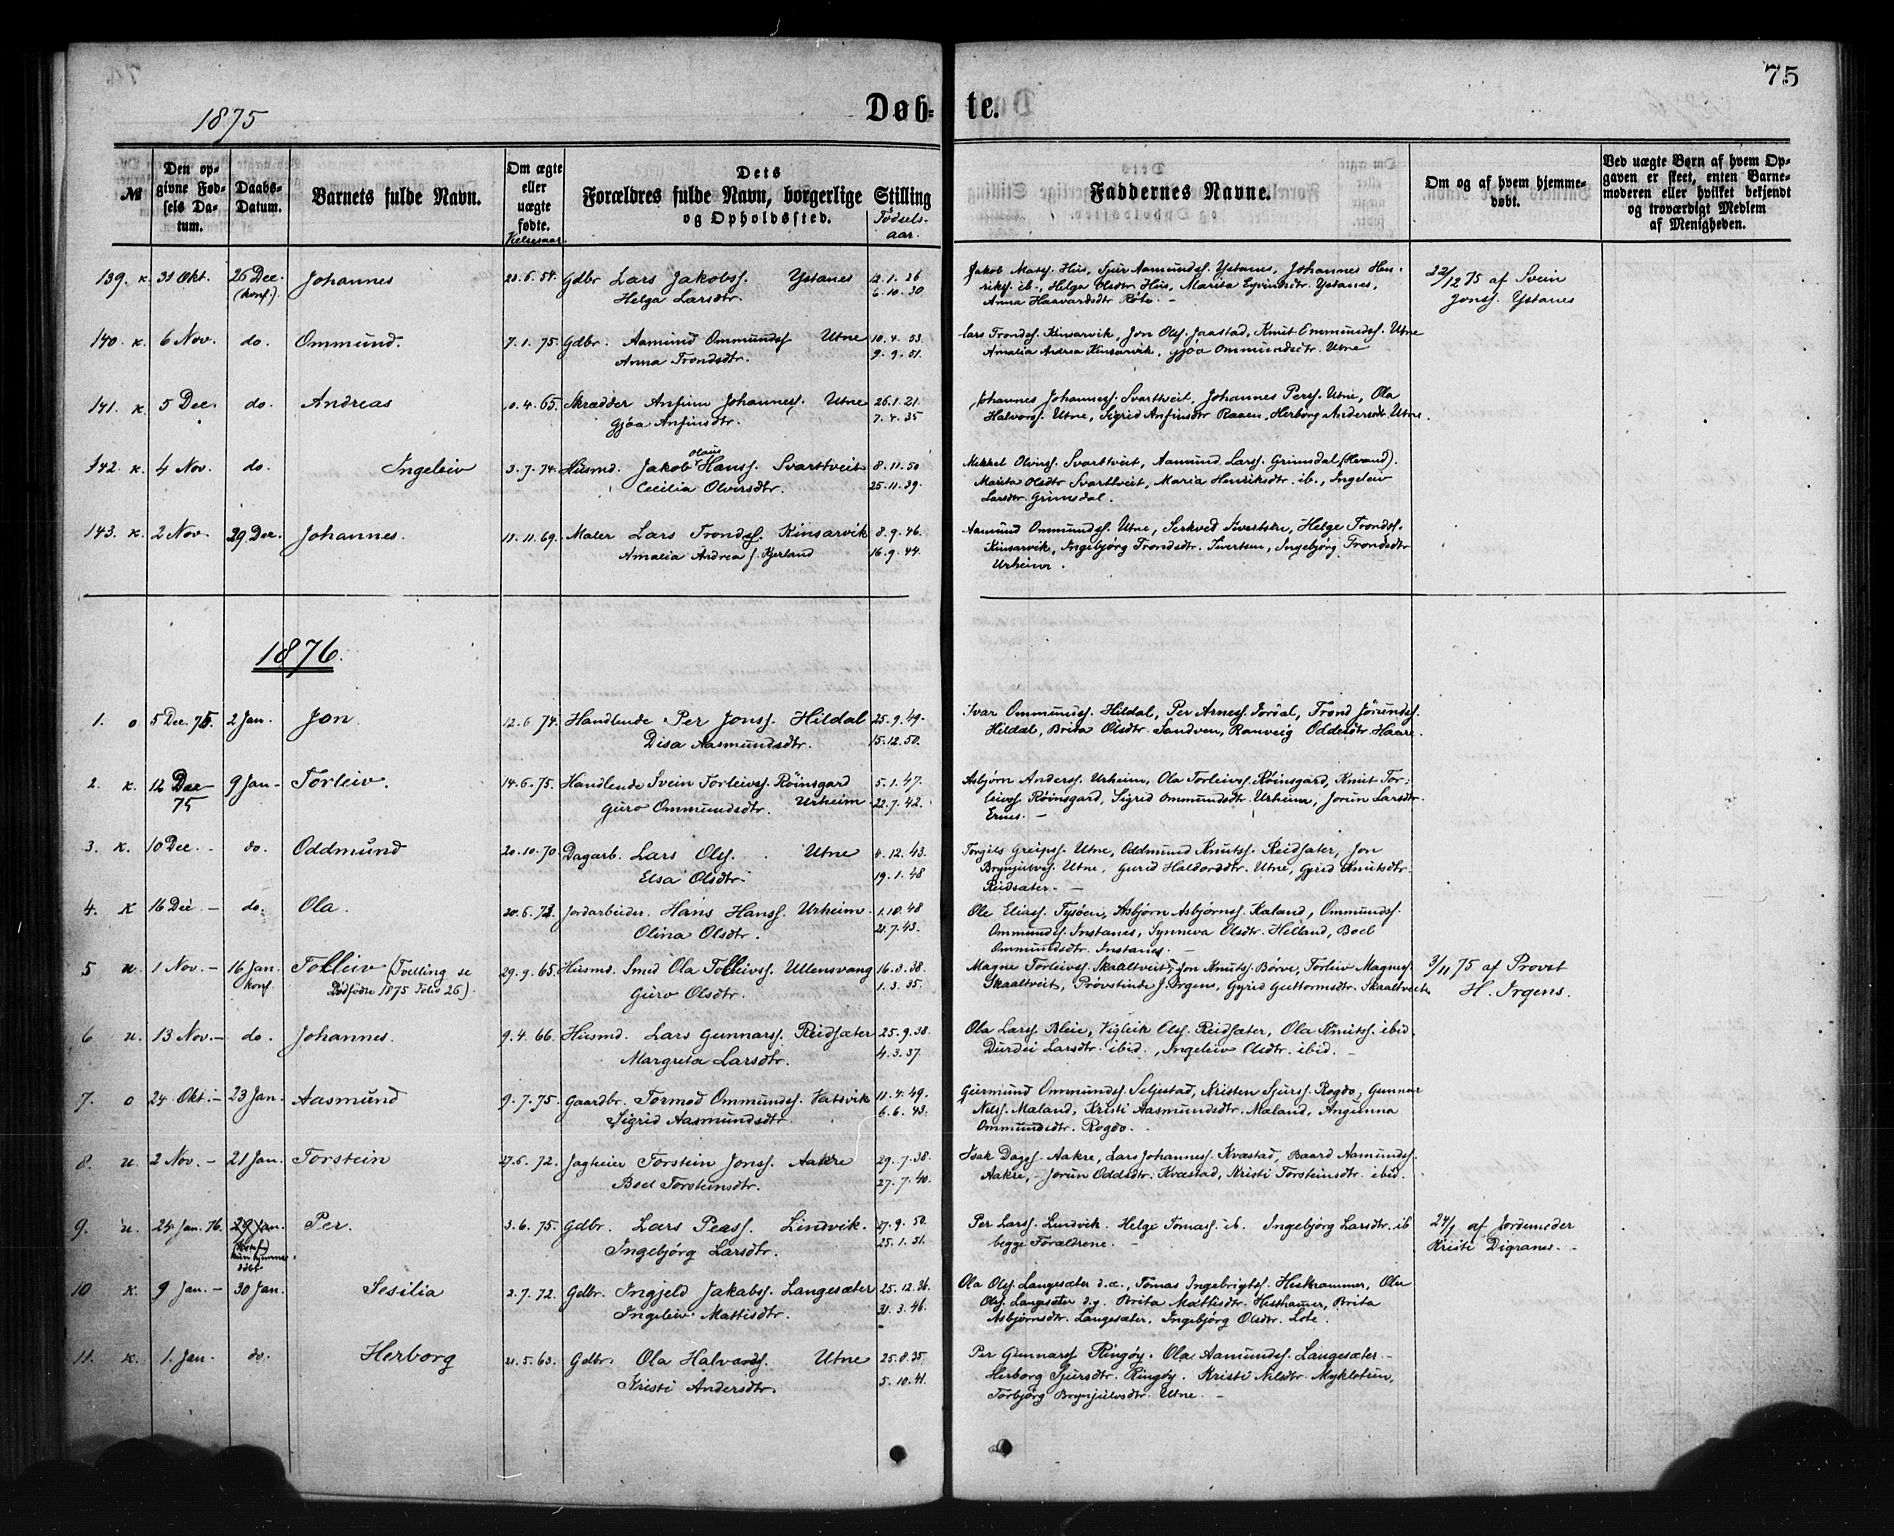 75
1875
Døb-te.
№
Den op-
givne Fød-
sels Da-
tum.
Daabs-
Datum.
Barnets fulde Navn.
Om ægte
eller
uægte
fødte.
Vielsesaar.
Dets
Forældres fulde Navn, borgerlige Stilling
og Opholdssted.
Fødsels-
aar.
Faddernes Navne.
Om og af hvem hjemme-
døbt.
Ved uægte Børn af hvem Op-
gaven er skeet, enten Barne-
moderen eller hvilket bekjendt
og troværdigt Medlem
af Menigheden.
139. K. 31 Okt. 26 Dec. Johannes Gdbr Lars Jakobss. Ystanes 12.1.26
(konf.) Helga Larsdtr. 6.10.30
Jakob Matss. Hus, Sjur Aamundss. Ystanes, Johannes Hen-
rikss. ib., Helga Olsdtr Hus, Marita Eyvindsdtr. Ystanes,
Anna Haavardsdtr Røte. -
22/12 75 af Svein
Jonss. Ystanes
140. K. 6 Nov. do. Ommund. 7.1.75. Gdbr. Aamund Ommundss Utne 10.4.53
Anna Trondsdtr. 9.9.51.
Lars Tronds. Kinsarvik, Jon Olss. Jaastad, Knut Ommundss. Utne
Amalia Andrea Kinsarvik, Gjøa Ommundsdtr. Utne
141. K. 5 Dec. do. Andreas 0.4.65. Skrædder Anfinn Johanness. Utne 26.1.21.
Gjøa Anfinsdtr. 7.4.35
Johannes Johanness. Svartveit, Johannes Perss. Utne, Ola
Halvorss. Utne, Sigrid Anfinsdtr Raaen, Herborg Andersdt. Utne.
142. K. 4 Nov. do. Ingeleiv 3.7.74. Husmd. Jakob Olaus Hanss. Svartveit 8.11.50
Cecilia Olversdtr. 25.11.39.
Mikkel Olvirss. Svartveit, Aamund Larss. Grimsdal (Kvand).
Marita Olsdtr Svartveit, Maria Henriksdtr. ib., Ingeleiv
Larsdtr. Grimsdal.
143. K. 2 Nov. 29 Dec. Johannes. 11.11.69. Maler Lars Trondss. Kinsarvik 8.9.46.
Amalia Andrea f. Kjerland 16.9.44.
Aamund Ommundss. Utne, Serkved Sivertsen, Helge Trondss.
Kinsarvik, Ingebjørg Trondsdtr. Sivertsen, Ingebjørg Trondsdtr
Urheim.
1876.
1. o 5 Dec. 75. 2 Jan. Jon. 12.6.74. Handlende Per Jonss. Hildal 25.9.49.
Disa Aasmundsdtr. 15.12.50.
Ivar Ommundss. Hildal, Per Arness. Jordal, Trond Jørundss.
Hildal, Brita Olsdtr. Sandven, Ranveig Oddesdtr. Haare.
2. K. 12 Dec 9 Jan - Torleiv. 14.6.75. Handlende Svein Torleivss. Røinsgard 5.1.47.
75 Guro Ommundsdtr. Urheim. 22.7.42.
Asbjørn Anderss. Urheim, Ola Torleivss. Røinsgard, Knut Tor-
leivss. Røinsgard, Sigrid Ommundsdtr. Urheim, Jorun Larsdtr.
Ernes. -
3. K. 10 Dec. - do. Oddmund 20.10.70. Dagarb. Lars Olss. Utne 4.12.43.
Elsa Olsdtr. 19.1.48
Torgils Greipss. Utne, Oddmund Knutss. Reidsæter, Jon
Brynjulvss. Utne, Gurid Haldorsdtr. Utne, Gyrid Knutsdtr.
Reidsæter. -
4. K 16 Dec - do. Ola. Jordarbeider. Hans Hanss. Urheim. 1.10.48
Olina Olsdtr. 21.7.43.
Ole Eliass. Tysøen, Asbjørn Asbjørnss. Kaland, Ommundss.
Ommundss. Instanes, Synneva Olsdtr. Helland, Boel
Ommundsdtr. Instanes. -
5 u. 1 Nov. - 16 Jan. Tolleiv (Tvilling se 29.9.65. Husmd. Smed Ola Tolleivss. Ullensvang 16.8.38.
konf. Dødfødte 1875 Folio 26). Guro Olsdtr. 1.3.35.
Magne Torleivss. Skaaltveit, Jon Knutss. Børve, Torleiv Magness.
Skaaltveit, Provstinde J. Irgens, Gyrid Guttormsdtr. Skaaltveit.
3/11 75 af Provst
H. Irgens.
6 u. 13 Nov. - do. Johannes. 9.4.66. Husmd. Lars Gunnarss. Reidsæter 25.9.38.
Margreta Larsdtr. 4.3.37.
Ola Larss. Bleie, Vigleik Olss. Reidsæter, Ola Knutss. ibid.
Durdei Larsdtr. ibid., Ingeleiv Olsdtr. ibid. -
7. o 24 Okt. - 23 Jan. Aasmund 9.7.75. Gaardbr. Tormod Ommundss. Vatsvik 11.4.49.
Sigrid Aasmundsdtr. 6.6.43.
Gurmund Ommundss. Seljestad, Kristen Sjurss. Rogdo, Gunnar
Nilss. Maland, Kristi Aasmundsdtr. Maland, Angunna
Ommundsdtr. Rogdo.
8. u. 2 Nov. - 21 Jan. Torstein 27.6.72. Jagteier Torstein Jonss. Aakre 29.7.38.
Boel Torsteinsdtr. 27.7.40.
Isak Dagss. Aakre, Lars Johanness. Kvæstad, Baard Aamundss.
Aakre, Jorun Oddsdtr. Kvæstad, Kristi Torsteinsdtr. ibid.
9. u. 24 Jan. 76. 29 Jan. Per. 3.6.75. Gdbr. Lars Peass. Lindvik. 27.9.50.
(konf.) kun hjemme- Ingebjørg Larsdtr. 25.1.51.
døbt
Per Larss. Lindvik. Helge Tomass. ib. Ingebjørg Larsdtr. ib
begge Forældrene. -
24/1 af Jordemoder
Kristi Digranes. -
10 K. 9 Jan. - 30 Jan. Sesilia 2.7.72. Gdbr. Ingjeld Jakobss. Langesæter 25.12.36.
Ingeleiv Mattisdtr. 31.3.46.
Ola Olss. Langesæter d.æ., Tomas Ingebrigtss. Hesthammer, Ola
Olss. Langesæter d.y. Brita Mattisdtr. Hesthamer, Brita
Asbjørnsdtr. Langesæter, Ingebjørg Olsdtr. Lote.
11. K. 1. Jan. do. Herborg 21.5.63. Gdbr. Ola Halvardss. Utne 25.8.35.
Kristi Andersdtr. 5.10.41.
Per Gunnarss Ringøy. Ola Aamundss. Langesæter
Herborg Sjursdtr. Ringøy. Kristi Nilsdtr. Mykletun,
Torbjørg Brynjulvsdtr. Utne. -